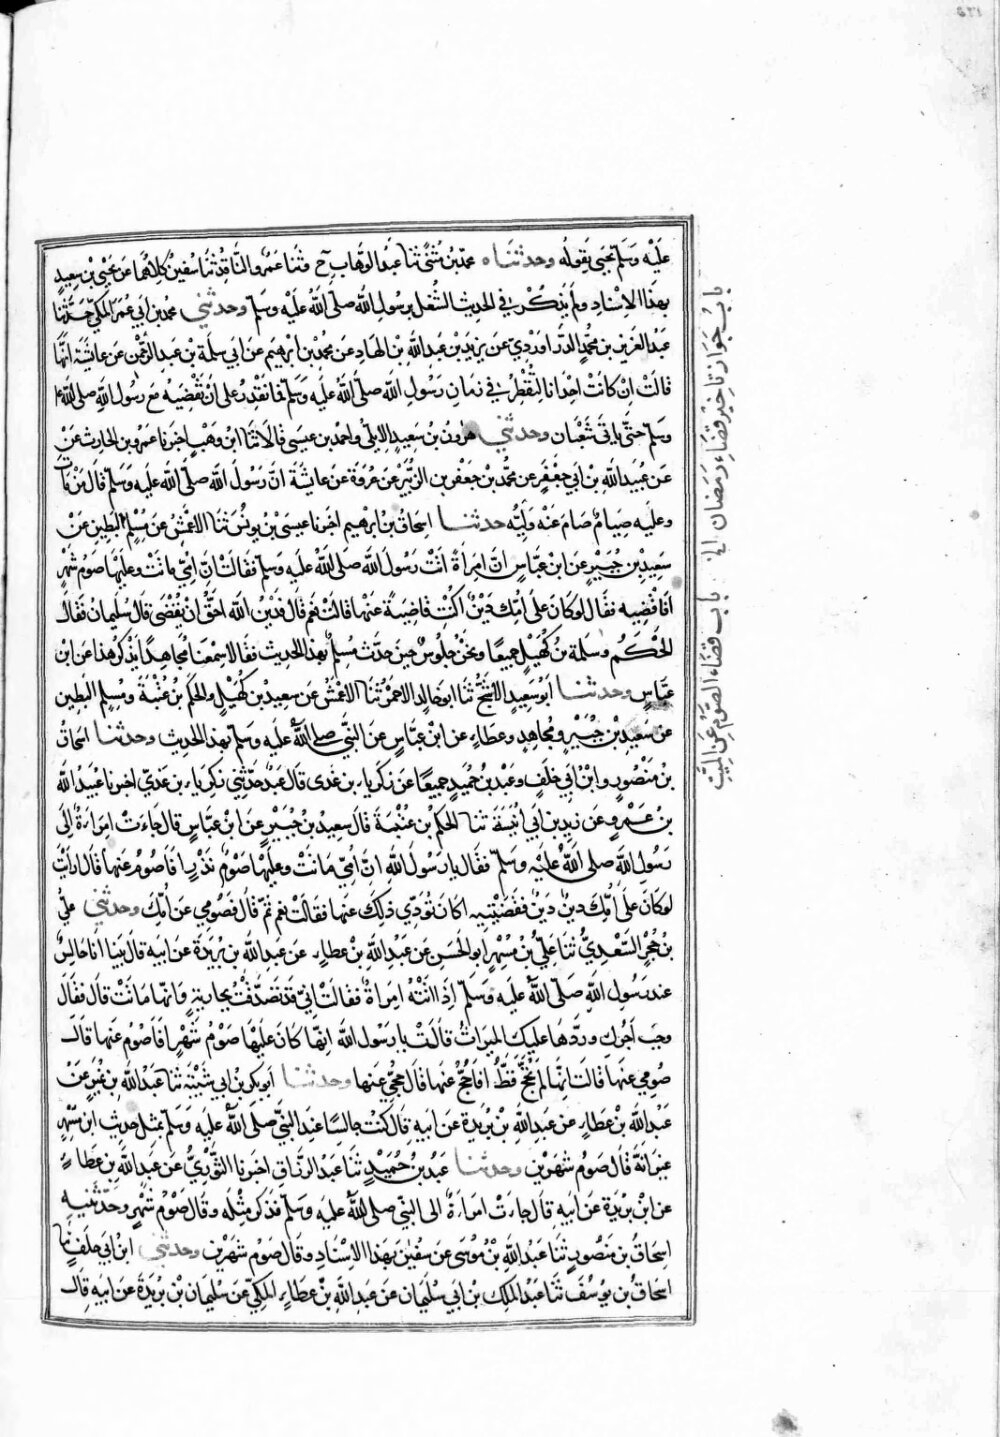 عليه وسلم يحيى يقوله وحدثناه محمد بن مثنى ثنا عبد الوهاب ح وثنا عمرو الناقد ثنا سفين كلاهما عن يحيى بن سعيد
بهذا الاسناد ولم يذكر في الحديث الشغل برسول الله صلى الله عليه وسلم وحدثني محمد بن ابي عمر المكي حدثنا
عبد العزيز بن محمد الدراوردي عن يزيد بن عبد الله بن الهاد عن محمد بن ابرهيم عن ابي سلمة بن عبد الرحمن عن عايشة انها
قالت ان كانت احدانا لتفطر في زمان رسول الله صلى الله عليه وسلم فما نقدر على ان نقضيه مع رسول الله صلى الله
وسلم حتى ياتي شعبان وحدثني هرون بن سعيد الايلي واحمد بن عيسى قالا ثنا ابن وهب اخبرنا عمرو بن الحارث عن
عن عبيد الله بن ابي جعفر عن محمد بن جعفر بن الزبير عن عروة عن عايشة ان رسول الله صلى الله عليه وسلم قال من مات
وعليه صيام صام عنه وليه حدثنا اسحاق بن ابرهيم اخبرنا عيسى بن يونس ثنا الاعمش عن مسلم البطين عن
سعيد بن جبير عن ابن عباس ان امراة اتت رسول الله صلى الله عليه وسلم فقالت ان امي ماتت وعليها صوم شهر
افاقضيه فقال لو كان على امك دين اكنت قاضية عنها قالت نعم قال فدين الله احق ان يقضى قال سليمان فقال
الحكم وسلمة بن كهيل جميعا ونحن جلوس حين حدث مسلم بهذا الحديث فقالا سمعنا مجاهدا يذكر هذا عن ابن
عباس وحدثنا ابو سعيد الاشج ثنا ابو خالد الاحمر ثنا الاعمش عن سعيد بن كهيل والحكم بن عتبة ومسلم البطين
عن سعيد بن جبير ومجاهد وعطاء عن ابن عباس عن النبي صلى الله عليه وسلم بهذا الحديث وحدثنا اسحاق
بن منصور وابن ابي خلف وعبد بن حميد جميعا عن زكرياء بن عدى قال عبد حدثني زكرياء بن عدي اخبرنا عبيد الله
بن عمرو عن زيد بن ابي انيسة ثنا الحكم بن عتيبة قال سعيد بن جبير عن ابن عباس قال جاءت امراة الى
رسول الله صلى الله عليه وسلم فقال يا رسول الله ان امي ماتت وعليها صوم نذر افاصوم عنها قال رايت
لو كان على امك دين فقضيتيه اكان تودي ذلك عنها فقالت نعم ثم قال فصومي عن امك وحدثني علي
بن حجر السعدي ثنا علي بن مسهر ابو الحسن عن عبد الله بن عطاء عن عبد الله بن بريدة عن ابيه قال بينا انا جالس
عند رسول الله صلى الله عليه وسلم اذ اتته امراة فقالت اني قد تصدقت بجارية وانها ماتت قال فقال
وجب اجرك وردها عليك الميراث قالت يا رسول الله انها كان عليها صوم شهر افاصوم عنها قال
صومي عنها قالت انها لم تحج قط افاحج عنها قال حجي عنها وحدثنا ابو بكر بن ابي شيبة ثنا عبد الله بن نمير عن
عبد الله بن عطاء عن عبد الله بن بريدة عن ابيه قال كنت جالسا عند النبي صلى الله عليه وسلم بمثل حديث ابن مسهر
غير انه قال صوم شهرين وحدثنا عبد بن حميد ثنا عبد الرزاق اخبرنا الثوري عن عبد الله بن عطاء
عن ابن بريدة عن ابيه قال جاءت امراة الى النبي صلى الله عليه وسلم فذكر مثله وقال صوم شهر وحدثنيه
اسحاق بن منصور ثنا عبد الله بن موسى عن سفين بهذا الاسناد وقال صوم شهرين وحدثني ابن ابي خلف ثنا
اسحاق بن يوسف ثنا عبد الملك بن ابي سليمان عن عبد الله بن عطاء المكي عن سليمان بن بريدة عن ابيه قال
باب جواز تاخير قضاء رمضان الخ
باب قضاء الصوم عن الميت